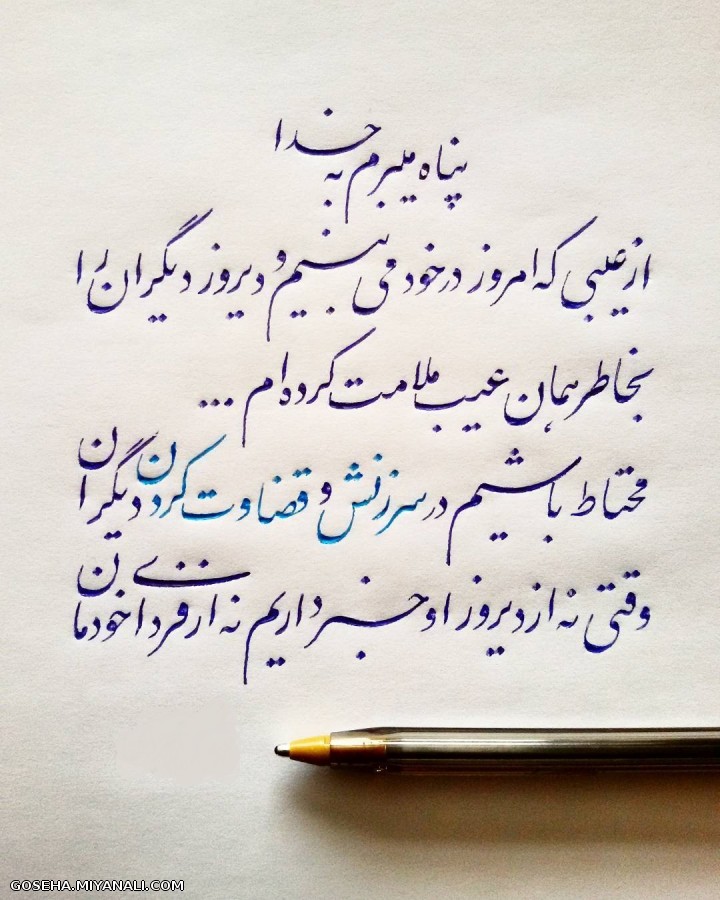 پناه میبرم به خدا
از عیبی که امروز در خود می بینم و دیروز دیگران را
بخاطر همان عیب ملامت کرده ام ...
محتاط باشیم در سرزنش و قضاوت کردن دیگران
وقتی نه از دیروز او خبر داریم نه از فردای خودمان
GOSEHA.MIYANALI.COM